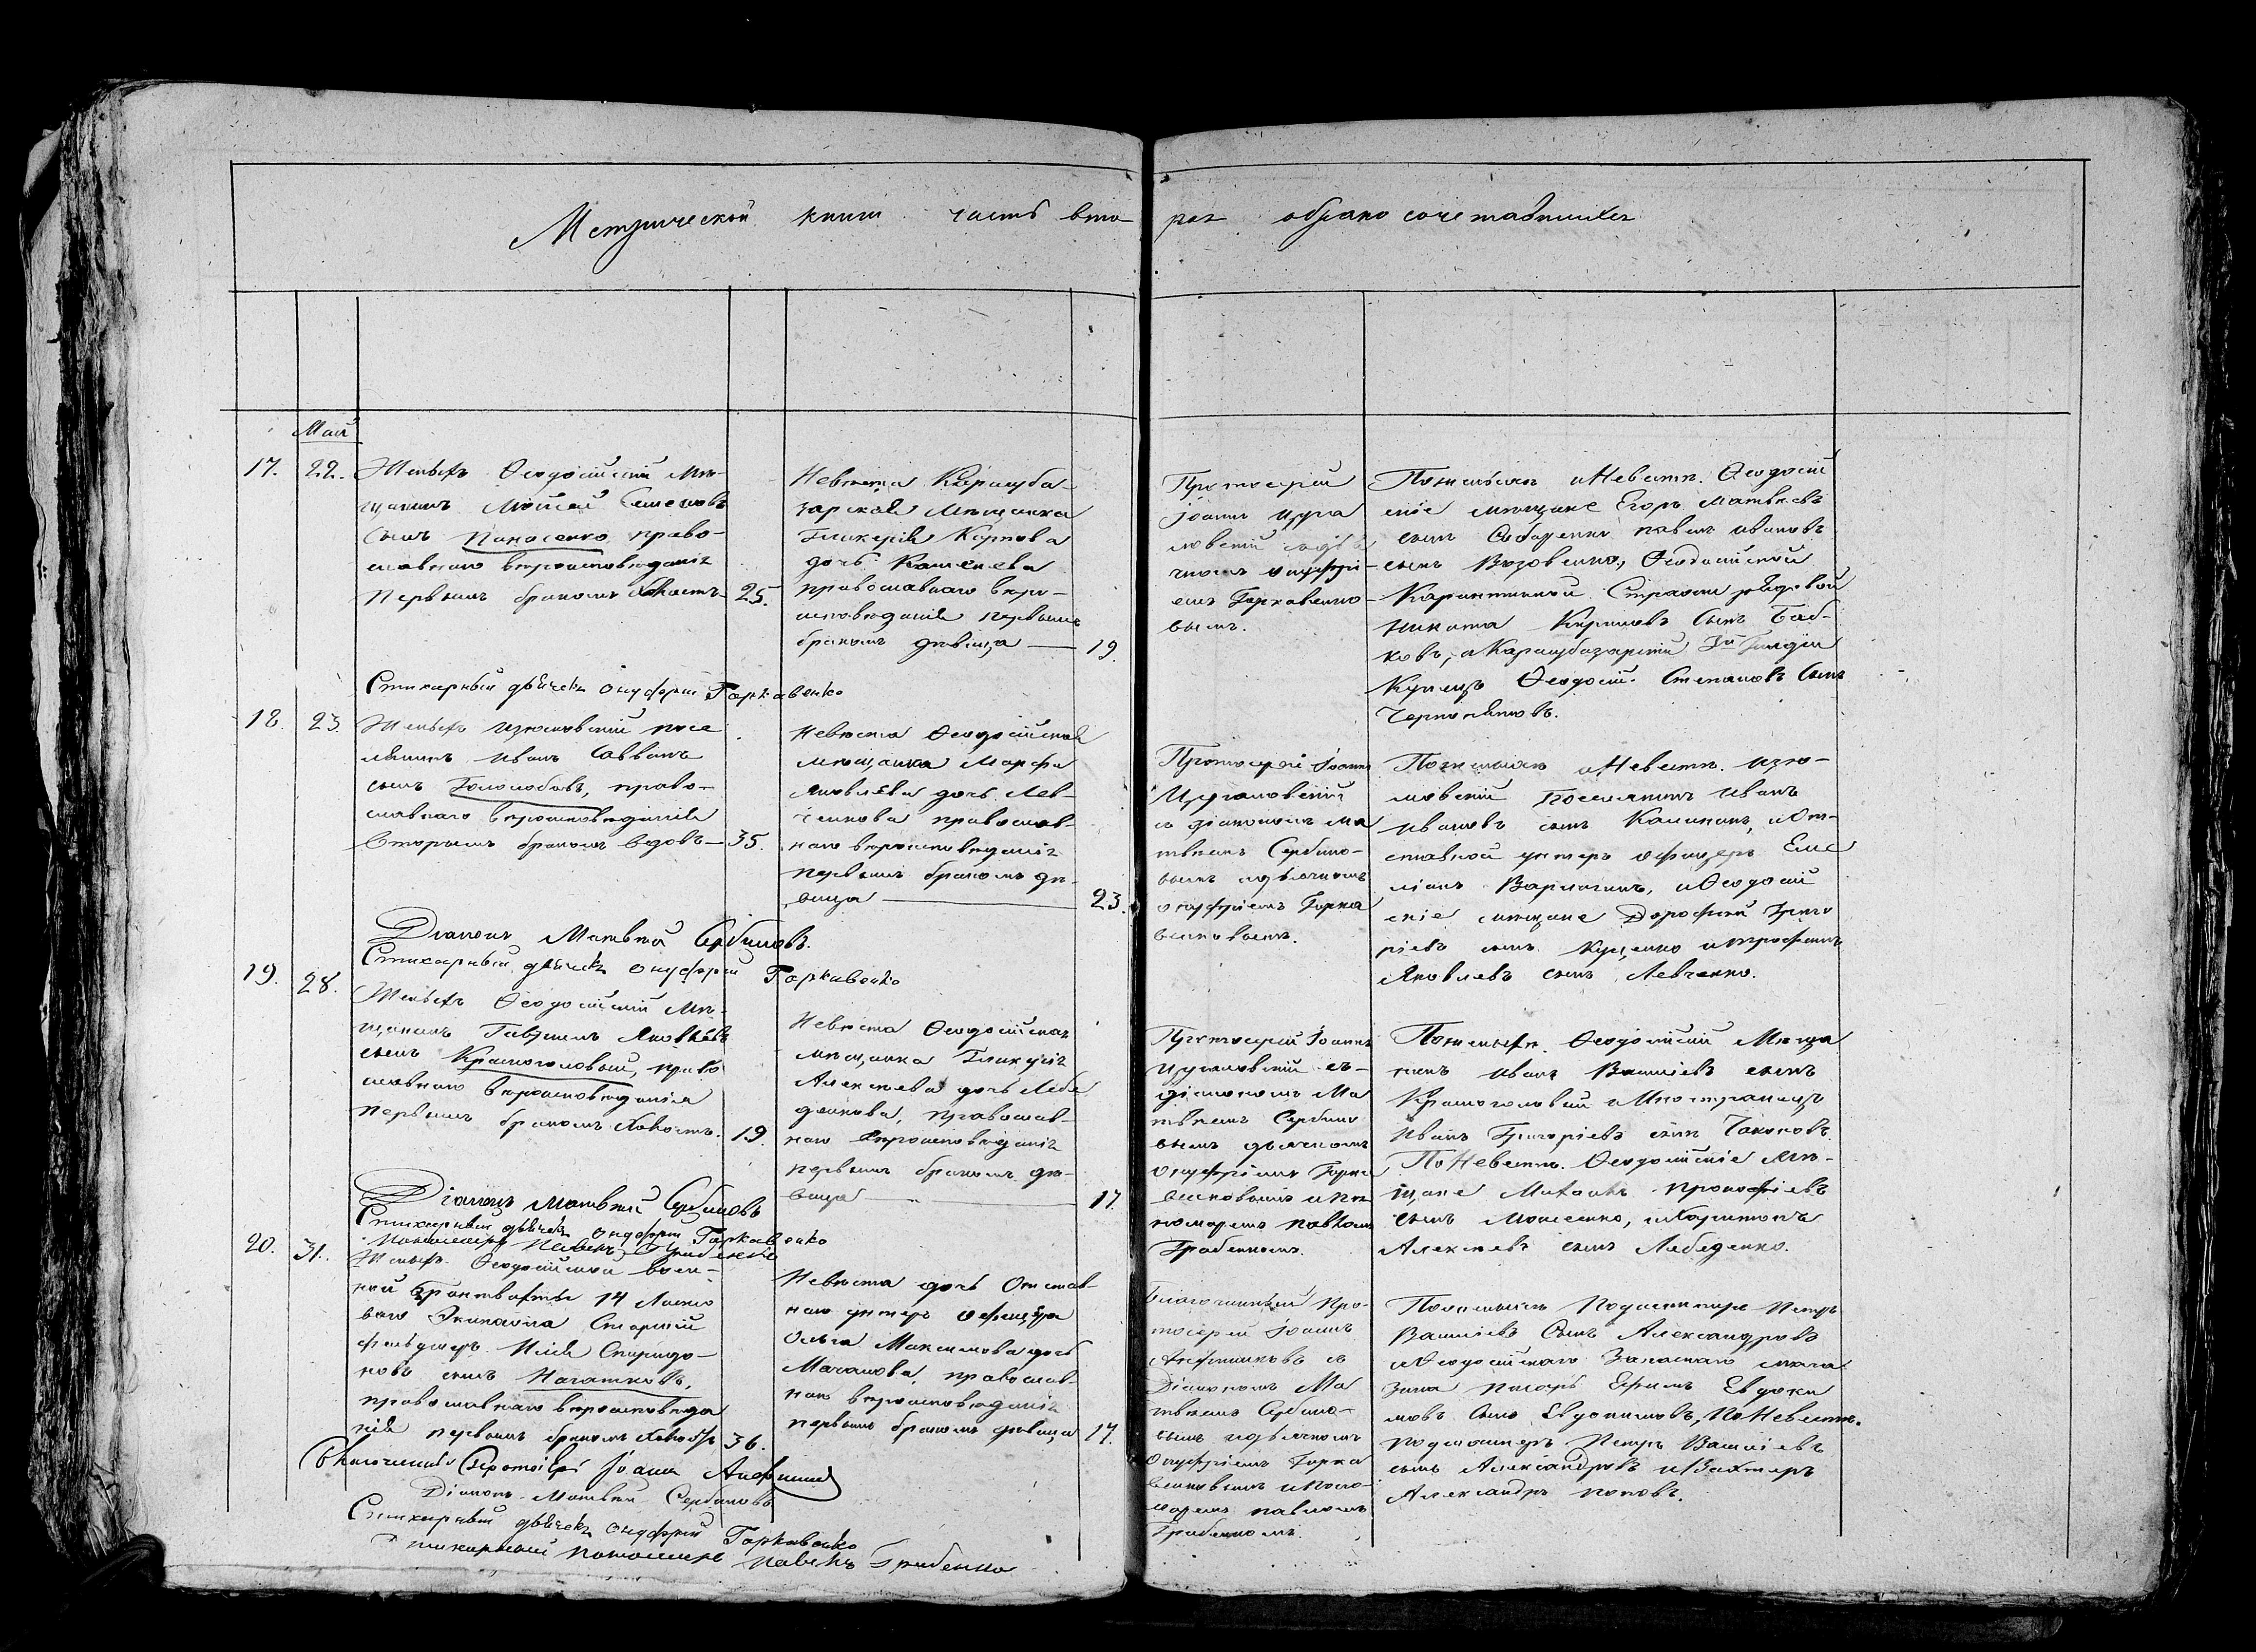 Метрической книги часть вто рая о брако сочетавшихся
Май
17. 22.
Женихъ Ѳеодосійскій мѣ-
щанинъ Мойсей Семеновъ
сынъ Панасенко, право-
славнаго вѣроисповѣданія
первымъ бракомъ холостъ 25.
Невѣста Карасуба-
зарская мѣщанка
Гликерія Карпова
дочь
православнаго вѣро-
исповѣданія первымъ
бракомъ дѣвица — 19.
Протоіерей
Іоаннъ
съ дья
чкомъ Онуфрі-
емъ Горкавенко-
вымъ.
По женихѣ и Невѣстѣ. Ѳеодосій
скіе мѣщане Егоръ Матвѣевъ
сынъ Павелъ Ивановъ
сынъ Ѳеодосійской
Карантинной Стражи рядовой
Никита Кириловъ сынъ Баб-
ковъ, и Карасубазарскій 3й Гильдіи
Купецъ Ѳеодосій Степановъ сынъ
Стихарный дьячекъ Онуфрій Горкавенко
18. 23.
Женихъ Изюмовскій посе
лянинъ Иванъ Саввинъ
сынъ Гололобовъ, право-
славнаго вѣроисповѣданія
вторымъ бракомъ вдовъ — 35.
Невѣста Ѳеодосійская
мѣщанка Марфа
Яковлева дочь Лев-
ченкова православ-
наго вѣроисповѣданія
первымъ бракомъ дѣ-
вица — 23.
Протоіерей Іоаннъ
съ діакономъ Ма
твѣемъ Сербино-
вымъ и дьячкомъ
Онуфріемъ Горка
венковымъ.
По женихѣ и Невѣстѣ. Изю-
мовскій Поселянинъ Иванъ
Ивановъ сынъ Калинин, и От-
ставной унтеръ офицеръ Еме
ліанъ и Ѳеодосій
скіе мѣщане Дорофей Григо
ріевъ сынъ Куценко и Трофимъ
Яковлевъ сынъ Левченко.
Діаконъ Матвѣй Сербиновъ.
Стихарный дьячекъ Онуфрій Горкавенко
19. 28.
Женихъ Ѳеодосійскій мѣ-
щанинъ Гавріилъ Яковлевъ
сынъ Красноголовый, право
славнаго вѣроисповѣданія
первымъ бракомъ холостъ. 19.
Невѣста Ѳеодосійская
мѣщанка Гликерія
Алексѣева дочь Лебе
денкова, православ-
наго вѣроисповѣданія
первымъ бракомъ дѣ-
вица — 17.
Протоіерей Іоаннъ
съ
діакономъ Ма
твѣемъ Сербино
вымъ дьячкомъ
Онуфріемъ Горка
венковымъ и по
номаремъ Павломъ
Грабенкомъ.
По женихѣ. Ѳеодосійскій Мѣща
нинъ Иванъ Василіевъ сынъ
Красноголовый и Иностранецъ
Иванъ Григоріевъ сынъ
По Невѣстѣ. Ѳеодосійскіе мѣ-
щане Михаилъ Прокофіевъ
сынъ Моисеенко, и Харитонъ
Алексѣевъ сынъ Лебеденко.
Діаконъ Матвѣй Сербиновъ
Стихарный дьячекъ Онуфрій Горкавенко
Пономарь Павелъ Грабенко
20. 31.
Женихъ Ѳеодосійской воен-
ной 14 Ласто
ваго Экипажа Старшій
фельдшеръ Илія Спиридо-
новъ сынъ Игнатковъ,
православнаго вѣроисповѣда
нія первымъ бракомъ холостъ 36.
Невѣста дочь Отстав-
наго унтеръ офицера
Ольга Максимова дочь
православ-
наго вѣроисповѣданія
первымъ бракомъ дѣвица 17.
Благочинный Про-
тоіерей Іоаннъ
съ
Діакономъ Ма
твѣемъ Сербино-
вымъ и дьячкомъ
Онуфріемъ Горка
венковымъ и Поно-
маремъ Павломъ
Грабенкомъ.
По женихѣ Петръ
Василіевъ сынъ Александровъ
и Ѳеодосійскаго Запаснаго мага
зина писарь Ефимъ Евдоки
мовъ сынъ Евдокимовъ, по Невѣстѣ.
Петръ Василіевъ
сынъ Александровъ и Вахтеръ
Александръ Поповъ.
Благочинный Протоіерей Іоаннъ
Діаконъ Матвѣй Сербиновъ
Стихарный дьячекъ Онуфрій Горкавенко
Стихарный пономарь Павелъ Грабенко